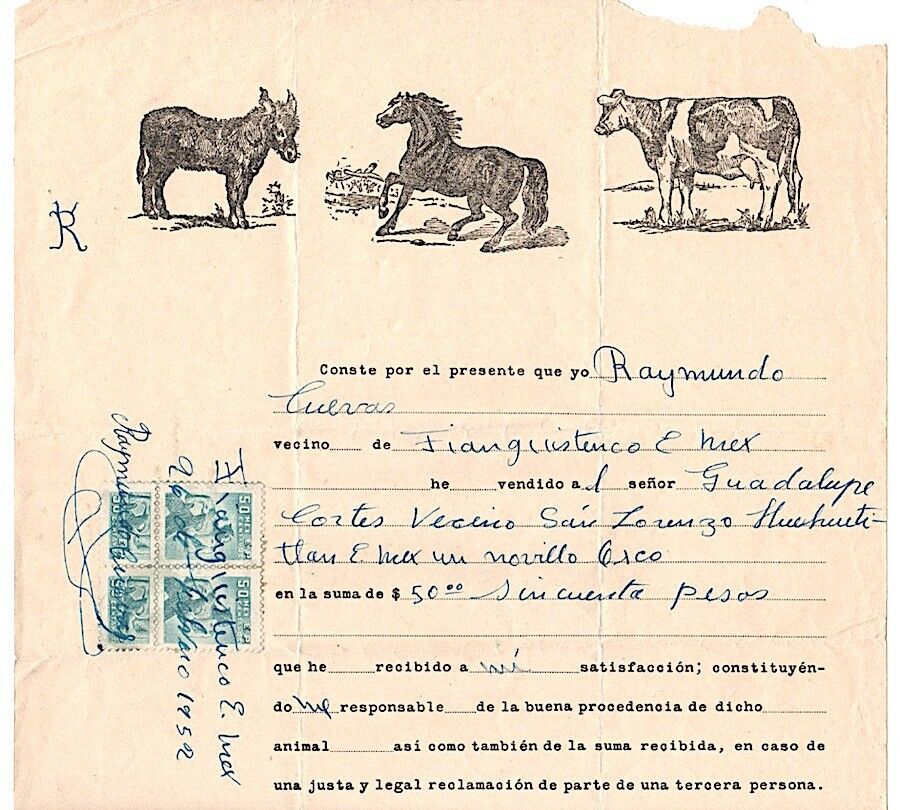 R
Conste por el presente que yo Raymundo
Cuevas
vecino de Tianguistenco E Mex
he vendido al señor Guadalupe
Cortes Vecino San Lorenzo Huehueti-
tlan E. Mex un novillo Osco
en la suma de $ 50 00 Sincuenta pesos
que he recibido a mi satisfacción; constituyén-
do me responsable de la buena procedencia de dicho
animal así como también de la suma recibida, en caso de
una justa y legal reclamación de parte de una tercera persona.
Tianguistenco E. Mex
de Febrero 1952
Raymundo Cuevas
50
50